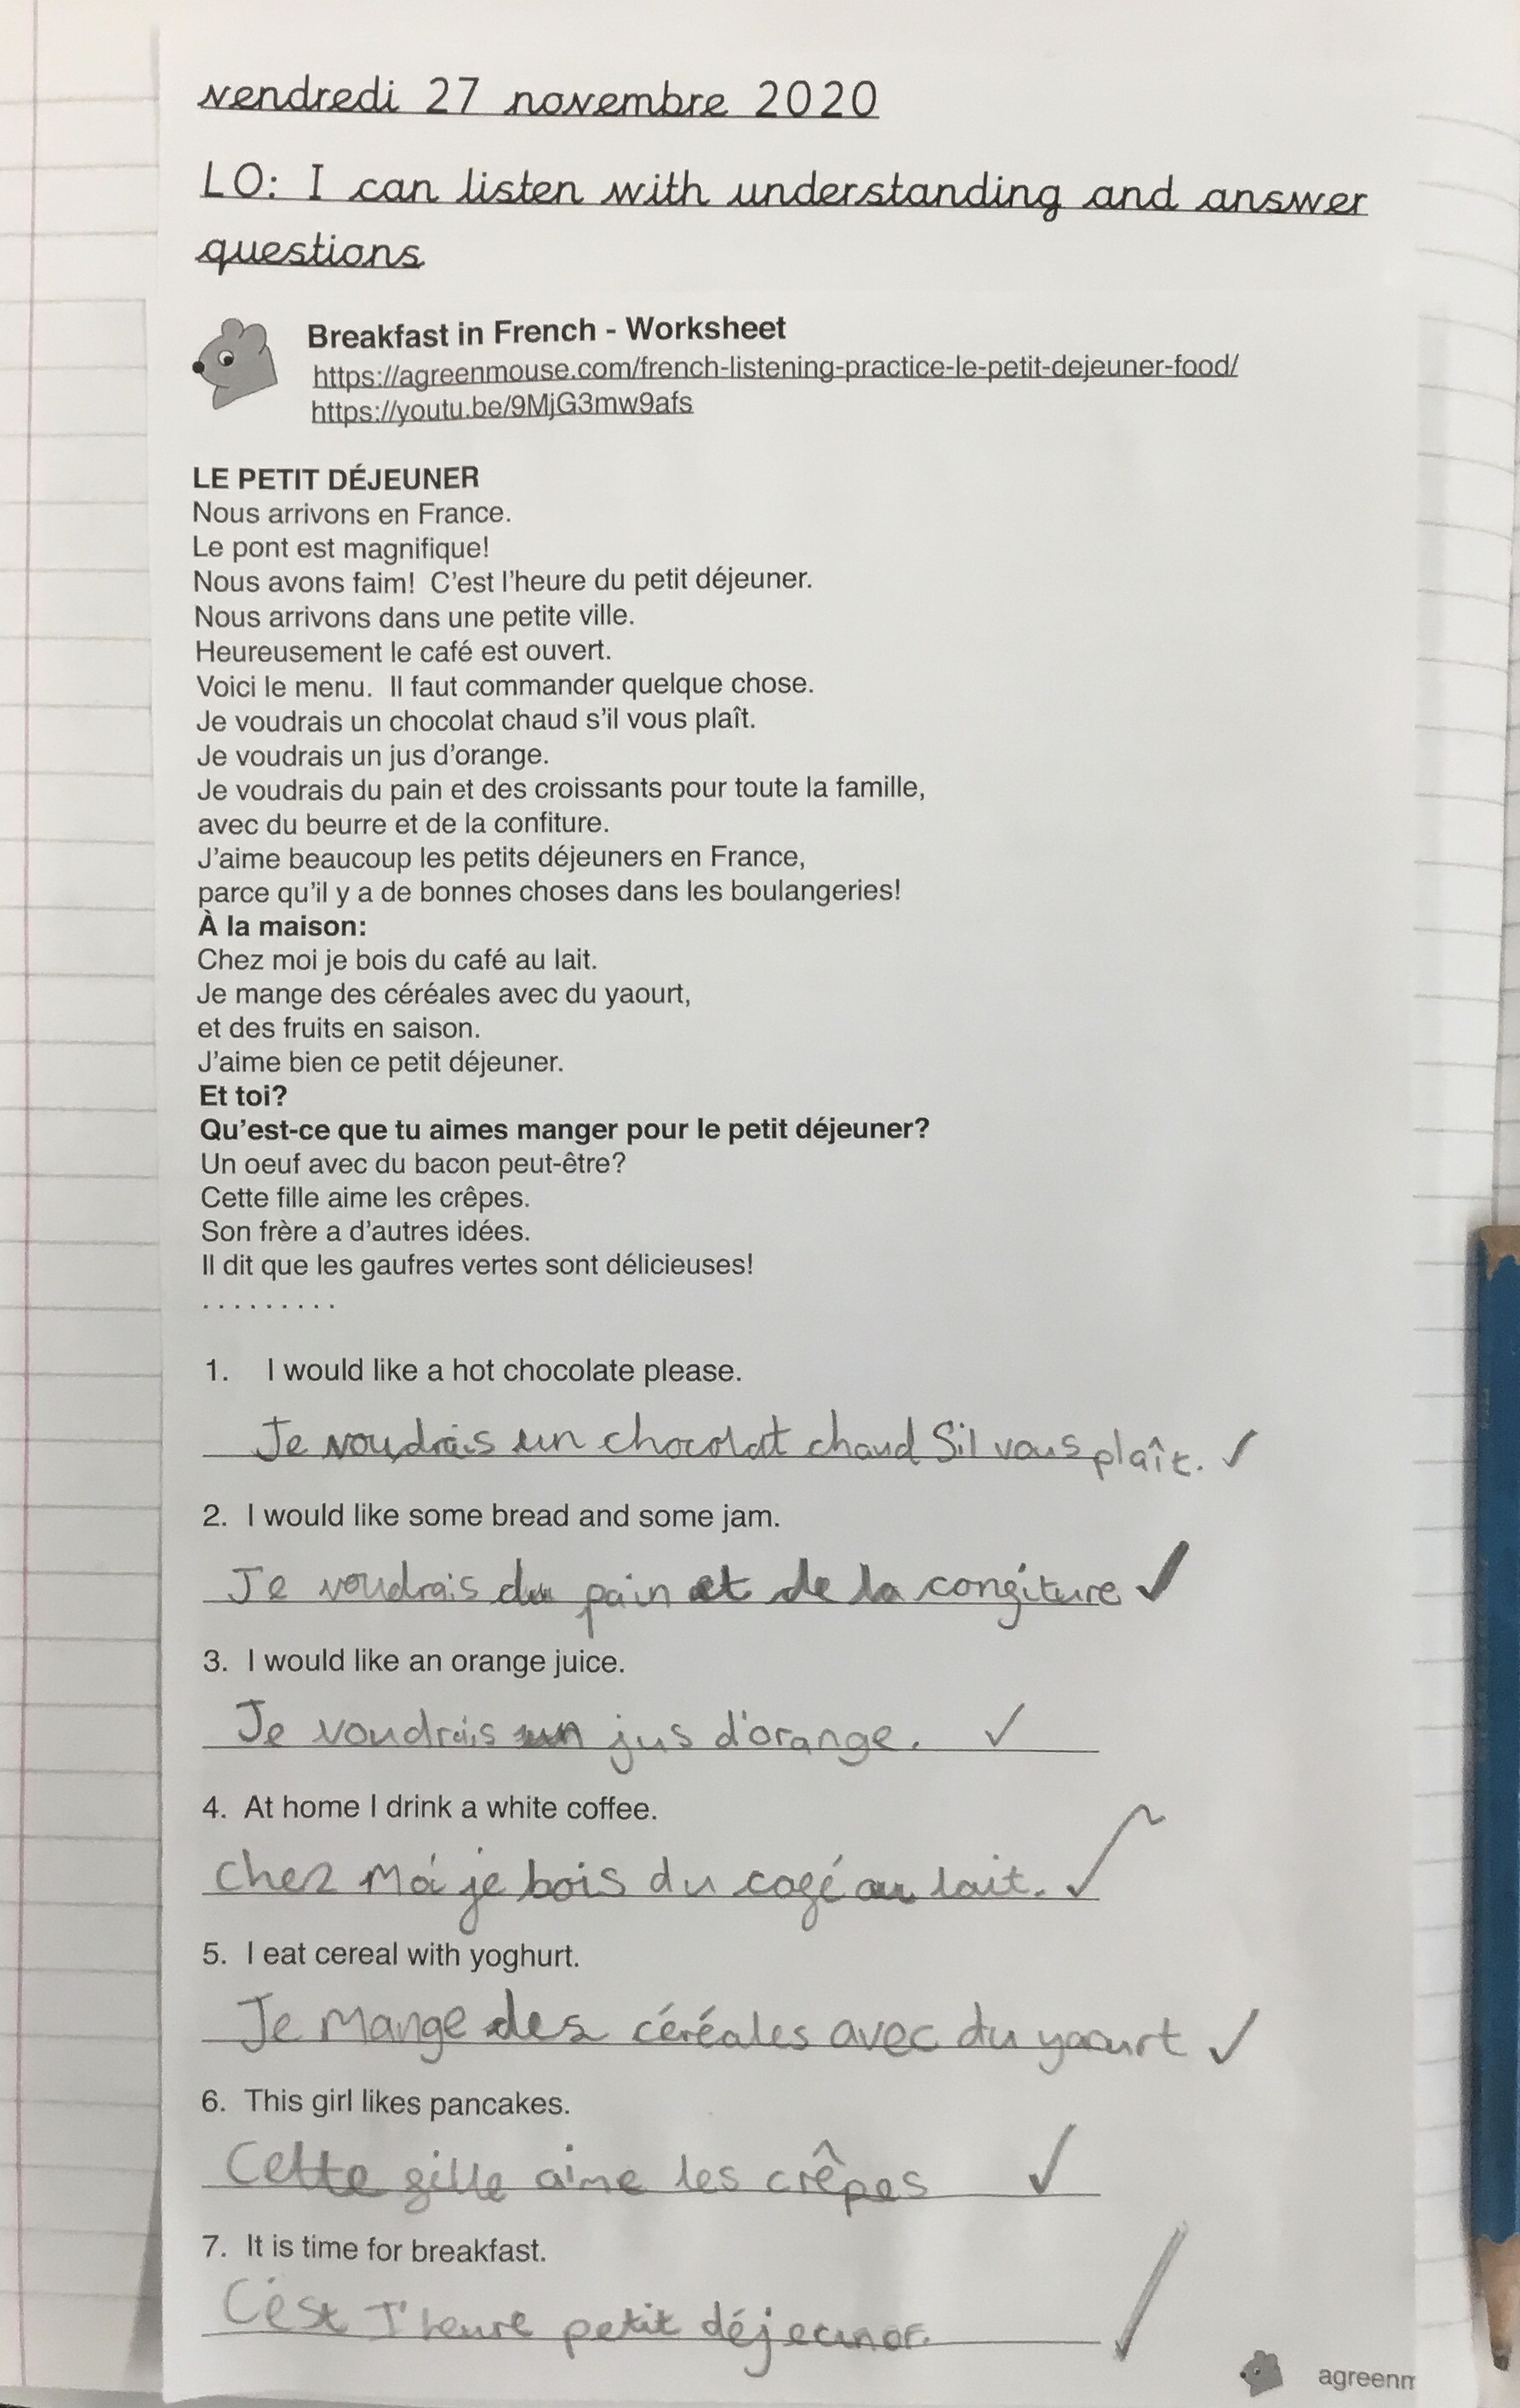 vendredi 27 novembre 2020
LO: I can listen with understanding and answer
questions
Breakfast in French - Worksheet
https://agreenmouse.com/french-listening-practice-le-petit-dejeuner-food/
https://youtu.be/9MjG3mw9afs
LE PETIT DÉJEUNER
Nous arrivons en France.
Le pont est magnifique!
Nous avons faim!  C'est l'heure du petit déjeuner.
Nous arrivons dans une petite ville.
Heureusement le café est ouvert.
Voici le menu.  Il faut commander quelque chose.
Je voudrais un chocolat chaud s'il vous plaît.
Je voudrais un jus d'orange.
Je voudrais du pain et des croissants pour toute la famille,
avec du beurre et de la confiture.
J'aime beaucoup les petits déjeuners en France,
parce qu'il y a de bonnes choses dans les boulangeries!
À la maison:
Chez moi je bois du café au lait.
Je mange des céréales avec du yaourt,
et des fruits en saison.
J'aime bien ce petit déjeuner.
Et toi?
Qu'est-ce que tu aimes manger pour le petit déjeuner?
Un oeuf avec du bacon peut-être?
Cette fille aime les crêpes.
Son frère a d'autres idées.
Il dit que les gaufres vertes sont délicieuses!
. . . . . . . . .
1. I would like a hot chocolate please.
Je voudrais un chocolat chaud Sil vous plaît. ✓
2. I would like some bread and some jam.
Je voudrais du pain et de la confiture ✓
3. I would like an orange juice.
Je voudrais un jus d'orange. ✓
4. At home I drink a white coffee.
Chez Moi je bois du cafè au lait. ✓
5. I eat cereal with yoghurt.
Je Mange des céréales avec du yaourt ✓
6. This girl likes pancakes.
Cette fille aime les crêpes ✓
7. It is time for breakfast.
C'est J'heure petit déjeuner.
agreenm